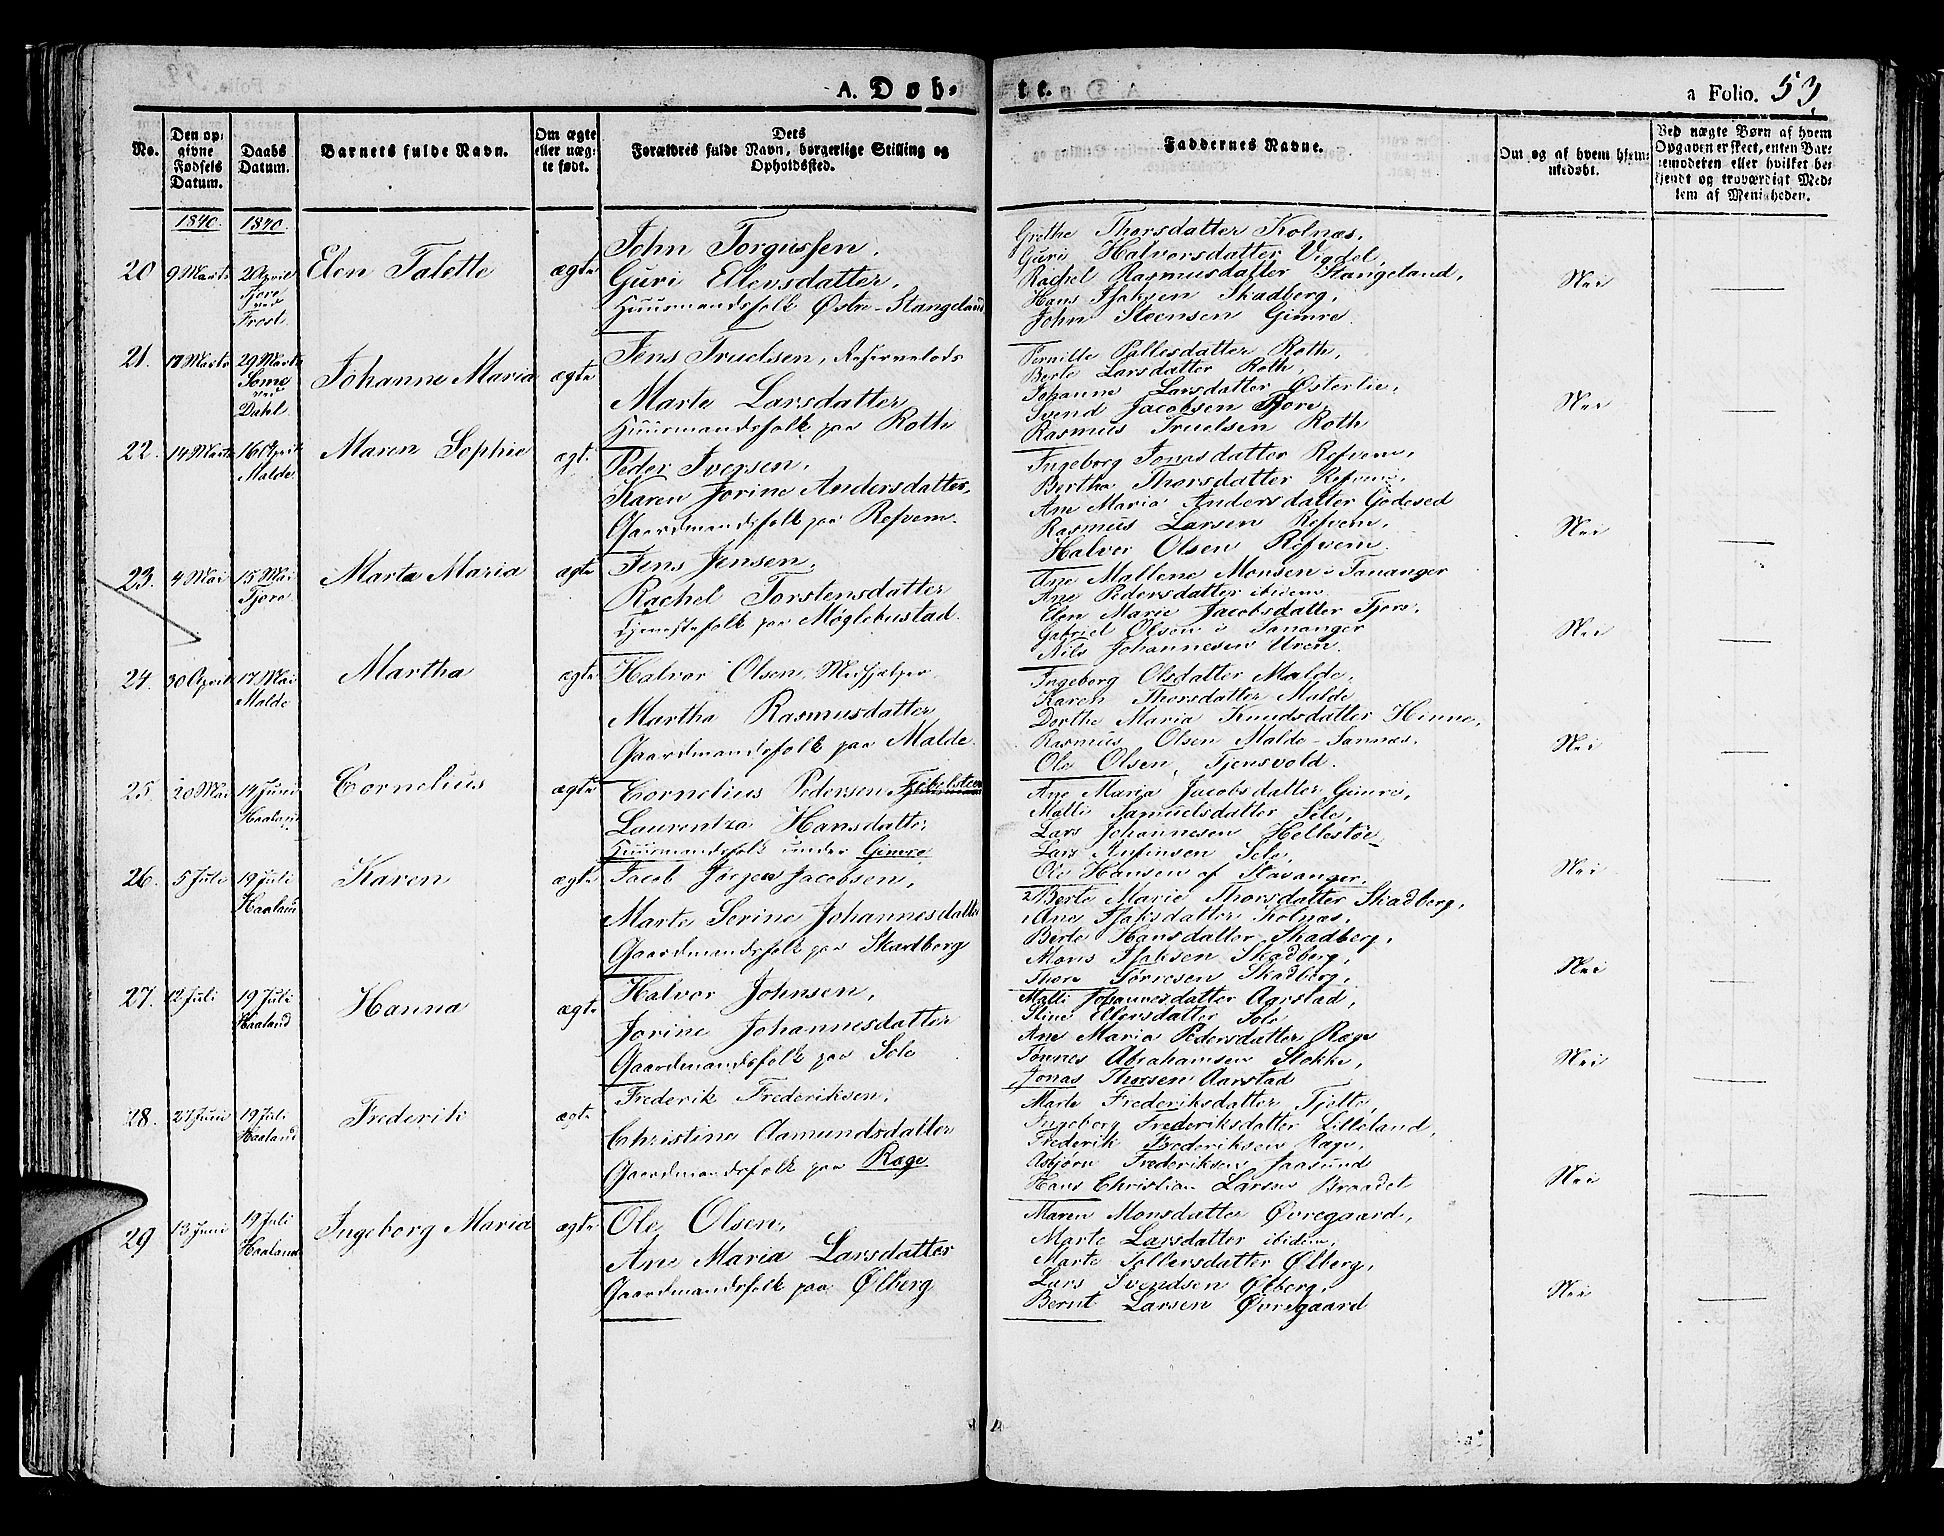 A. Døb-
te.
a Folio. 53
No.
Den op-
givne
Fødsels
Datum.
Daabs
Datum.
Barnets fulde Navn.
Om ægte
eller uæg-
te født.
Dets
Forældres fulde Navn, borgerlige Stilling og
Opholdssted.
Faddernes Navne.
Om og af hvem hjem-
medøbt.
Ved uægte Børn af hvem
Opgaven er skeet, enten Bar-
nemoderen eller hvilket be-
kjendt og troværdigt Med-
lem af Menigheden.
1840.
1840.
20
9 Marts
2 April
Tjore
ved
Frost.
Elen Talette
ægte
John Torgussen,
Guri Ellevsdatter,
Huusmandsfolk Østre-Stangeland
Grethe Thorsdatter Kolnæs,
Guri Halvorsdatter Vigdel,
Rachel Rasmusdatter Stangeland,
Hans Isaksen Skadberg,
John Steensen Gimre.
Nei
21.
17 Marts
29 Marts
Somæ
ved
Dahl
Johanne Maria
ægte
Jens Truelsen, Reservelods
Marte Larsdatter
Huusmandsfolk paa Roth
Pernille Pallesdatter Roth,
Berte Larsdatter Roth,
Johanne Larsdatter Østerlie,
Svend Jacobsen Tjore,
Rasmus Truelsen Roth
Nei
22.
14 Marts
16 April
Malde
Maren Sophie
ægte
Peder Iversen,
Karen Jorine Andersdatter,
Gaardmandsfolk paa Refvem.
Ingeborg Jonasdatter Refvem,
Bertha Thorsdatter Refvem,
Ane Maria Andersdatter Godesed
Rasmus Larsen Refvem,
Halvor Olsen Refvem.
Nei
23.
4 Mai
15 Mai
Tjore
Marta Maria
ægte
Jens Jensen,
Rachel Torstensdatter
Tjenestefolk paa Møglebustad.
Ane Mallene Monsen i Tananger
Ane Pedersdatter ibidem,
Elen Marie Jacobsdatter Tjore,
Gabriel Olsen i Tananger
Nils Johannesen Uren.
Nei
24.
30 April
17 Mai
Malde
Martha
ægte
Halvor Olsen, Medhjelper
Martha Rasmusdatter
Gaardmandsfolk paa Malde.
Ingeborg Olsdatter Malde,
Karen Thorsdatter Malde
Dorthe Maria Knudsdatter Hinne,
Rasmus Olsen Malde-Sannæs,
Ole Olsen, Tjensvold.
Nei
25
20 Mai
14 Juni
Haaland
Cornelius
ægte
Cornelius Pedersen
Laurentza Hansdatter
Huusmandsfolk under Gimre
Ane Maria Jacobsdatter Gimre,
Malli Samuelsdatter Sole,
Lars Johannesen Hellestøe
Lars Anfinsen Sole,
Ole Hansen af Stavanger,
Nei
26.
5 Juli
19 Juli
Haaland
Karen
ægte
Jacob Jørgen Jacobsen,
Marte Serine Johannesdatter
Gaardmandsfolk paa Skadberg
2 Berte Marie Thorsdatter Skadberg,
1 Ane Isaksdatter Kolnæs,
Berte Hansdatter Skadberg,
Mons Isaksen Skadberg,
Thore Tørresen Skadberg,
Nei
27.
12 Juli
19 Juli
Haaland
Hanna
ægte
Halvor Johnsen,
Jorine Johannesdatter
Gaardmandsfolk paa Sole
Malli Johannesdatter Aarstad,
Stine Ellersdatter Sole
Ane Maria Pedersdatter Ræge
Tønnes Abrahamsen Stokke,
Jonas Thorsen Aarstad
Nei
28.
27 Juni
19 Juli
Haaland
Frederik
ægte
Frederik Frederiksen,
Christine Aamundsdatter
Gaardmandsfolk paa Rage
Marte Frederiksdatter Tjelte,
Ingeborg Frederiksdatter Litleland,
Frederik Frederiksen Rage,
Asbjørn Frederiksen Jaasund
Hans Christian Larsen Braadet
Nei
29
13 Juni
19 Juli
Haaland
Ingeborg Maria
ægte
Ole Olsen,
Ane Maria Larsdatter
Gaardmandsfolk paa Ølberg
Maren Monsdatter Øvregaard,
Marte Larsdatter ibidem,
Marte Tollersdatter Ølberg,
Lars Svendsen Ølberg,
Bernt Larsen Øvregaard
Nei